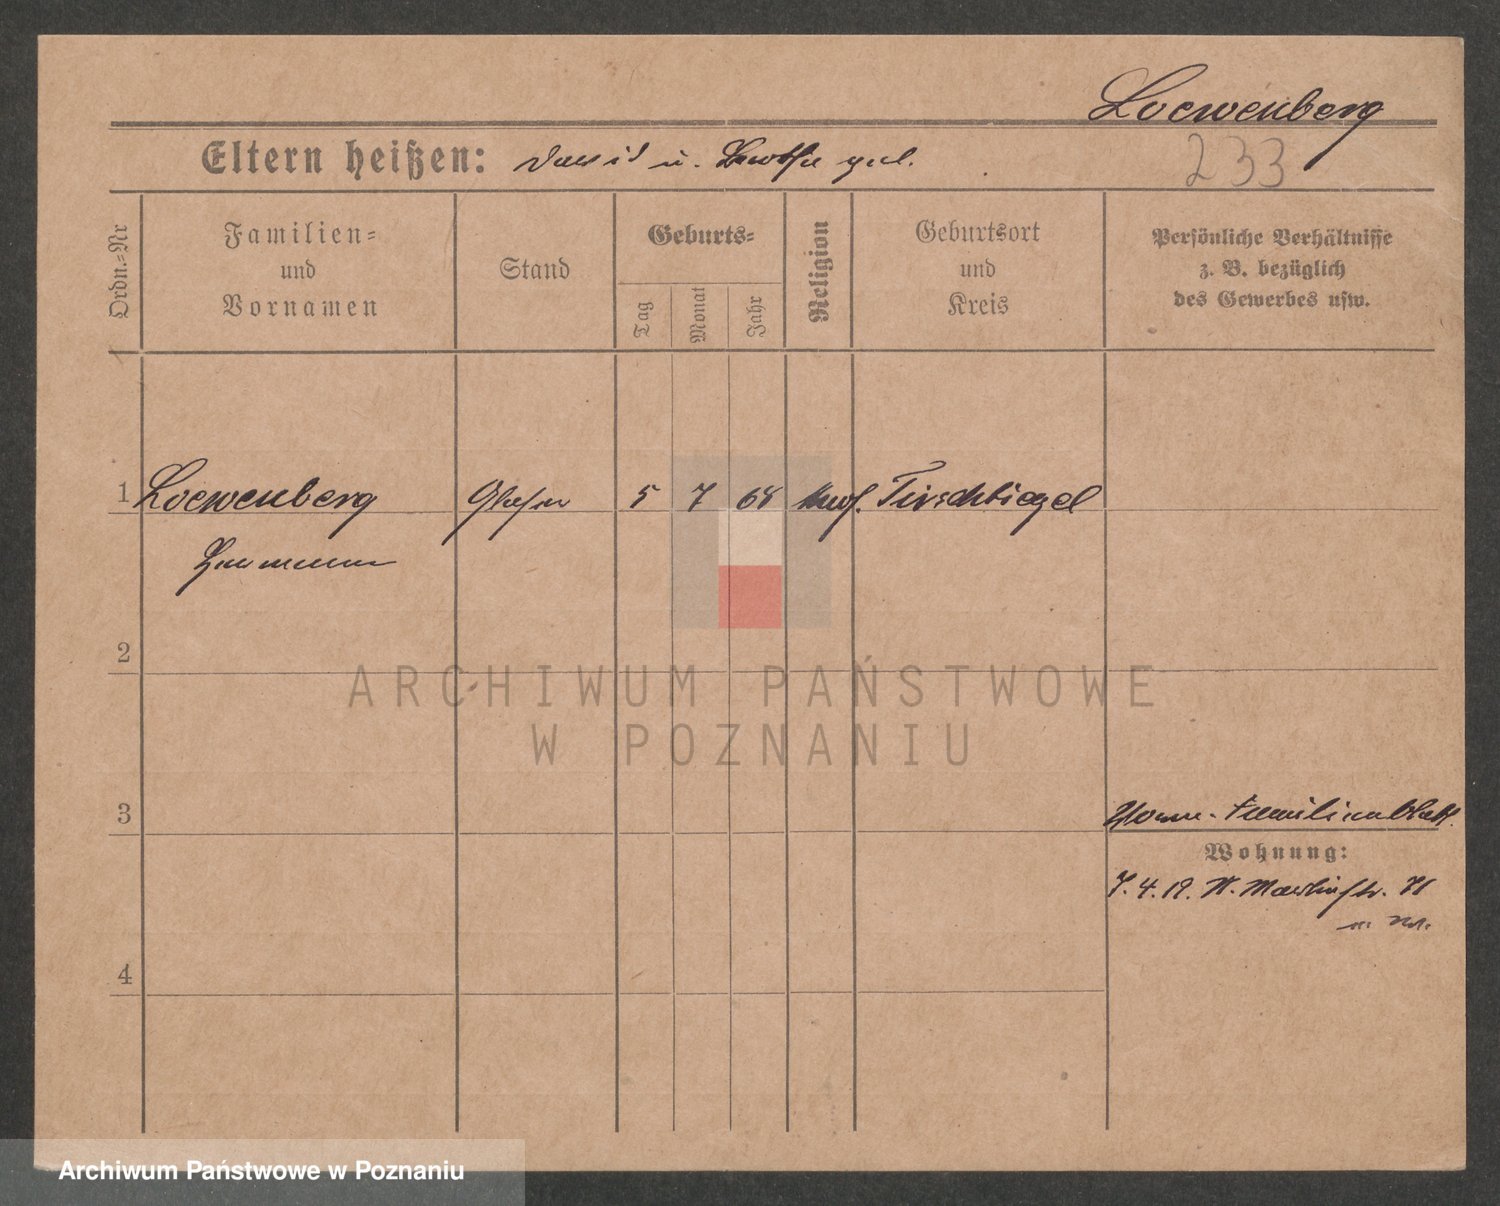 Loewenberg
Eltern heißen: David u. geb.
233
Ordn.=Nr
Familien=
und
Vornamen
Stand
Geburts=
Tag
Monat
Jahr
Religion
Geburtsort
und
Kreis
Persönliche Verhältnisse
z. B. bezüglich
des Gewerbes usw.
1 Loewenberg Glaser 5 7 68 mos. Tirschtiegel
Hermann
2
ARCHIWUM PAŃSTWOWE
W POZNANIU
3
Familienblatt.
Wohnung:
7.4.19. St. Martinstr. 71
4
Archiwum Państwowe w Poznaniu